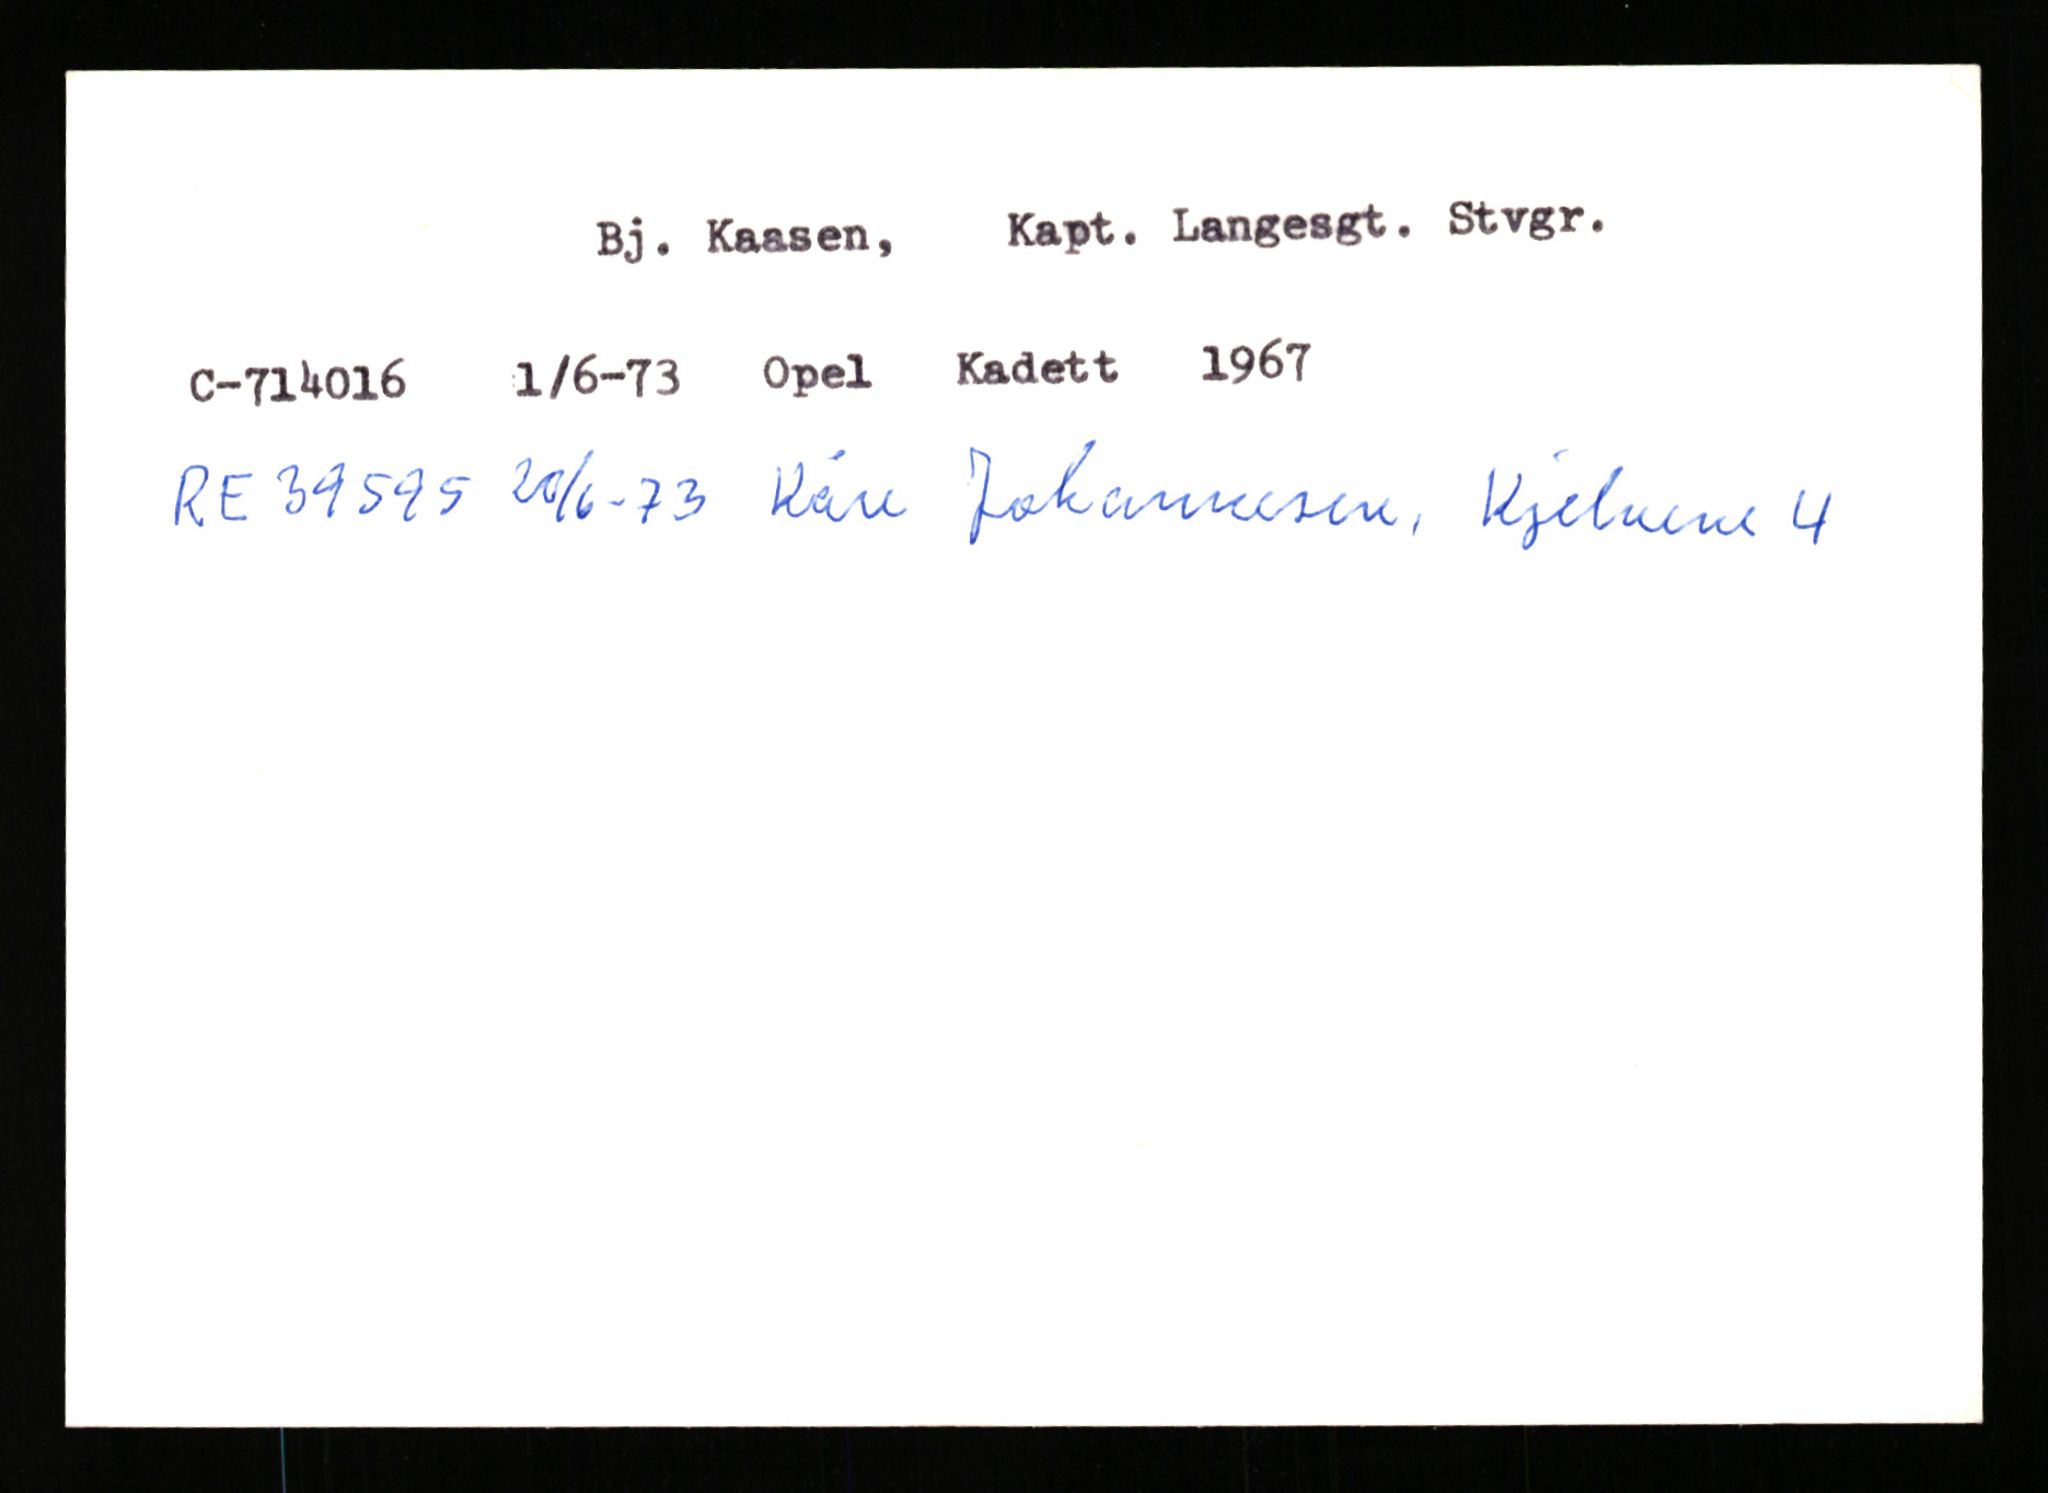 Bj. Kaasen, Kapt. Langesgt. Stvgr.
C-714016 1/6-73 Opel Kadett 1967
RE 39595 20/6-73 Kåre Johannesen, Kjelvene 4